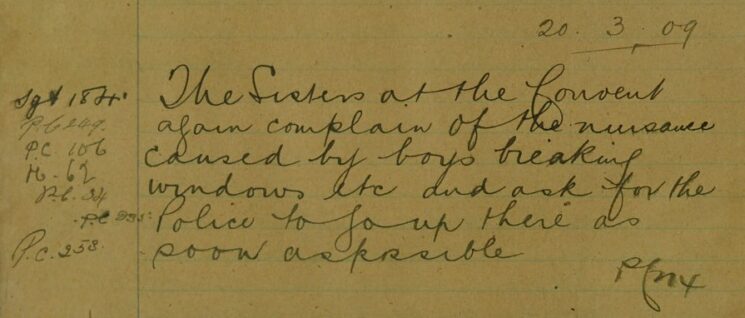 20.3.09
The Sisters at the Convent
again complain of the nuisance
caused by boys breaking
windows etc and ask for the
Police to go up there as
soon as possible
Sgt 184.
P.C. 249.
P.C. 106
H. 62
P.C. 34
P.C. 258.